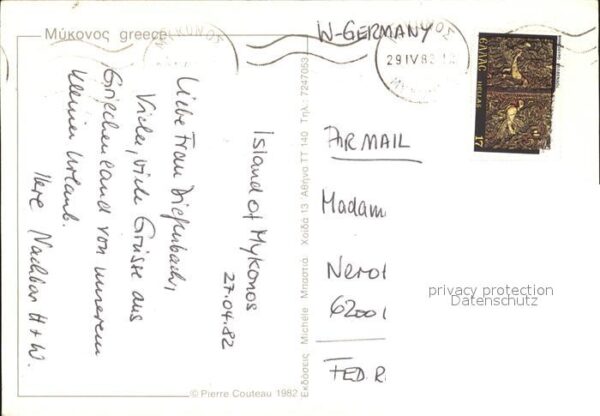 Μύκονος greece
Island of Mykonos
27.04.82
Liebe Frau Diefenbach,
Viele, viele Grüsse aus
Griechenland von unserem
kleinen Urlaub.
Ihre Nachbar H + W.
© Pierre Couteau 1982
Εκδόσεις Michèle Μπαστιά Χοϊδά 13 Αθήνα ΤΤ 140 Τηλ.: 7247053
W-GERMANY
29 IV 82
ΕΛΛΑΣ HELLAS
17
AIR MAIL
Madam
Nero
6200
FED R
privacy protection
Datenschutz